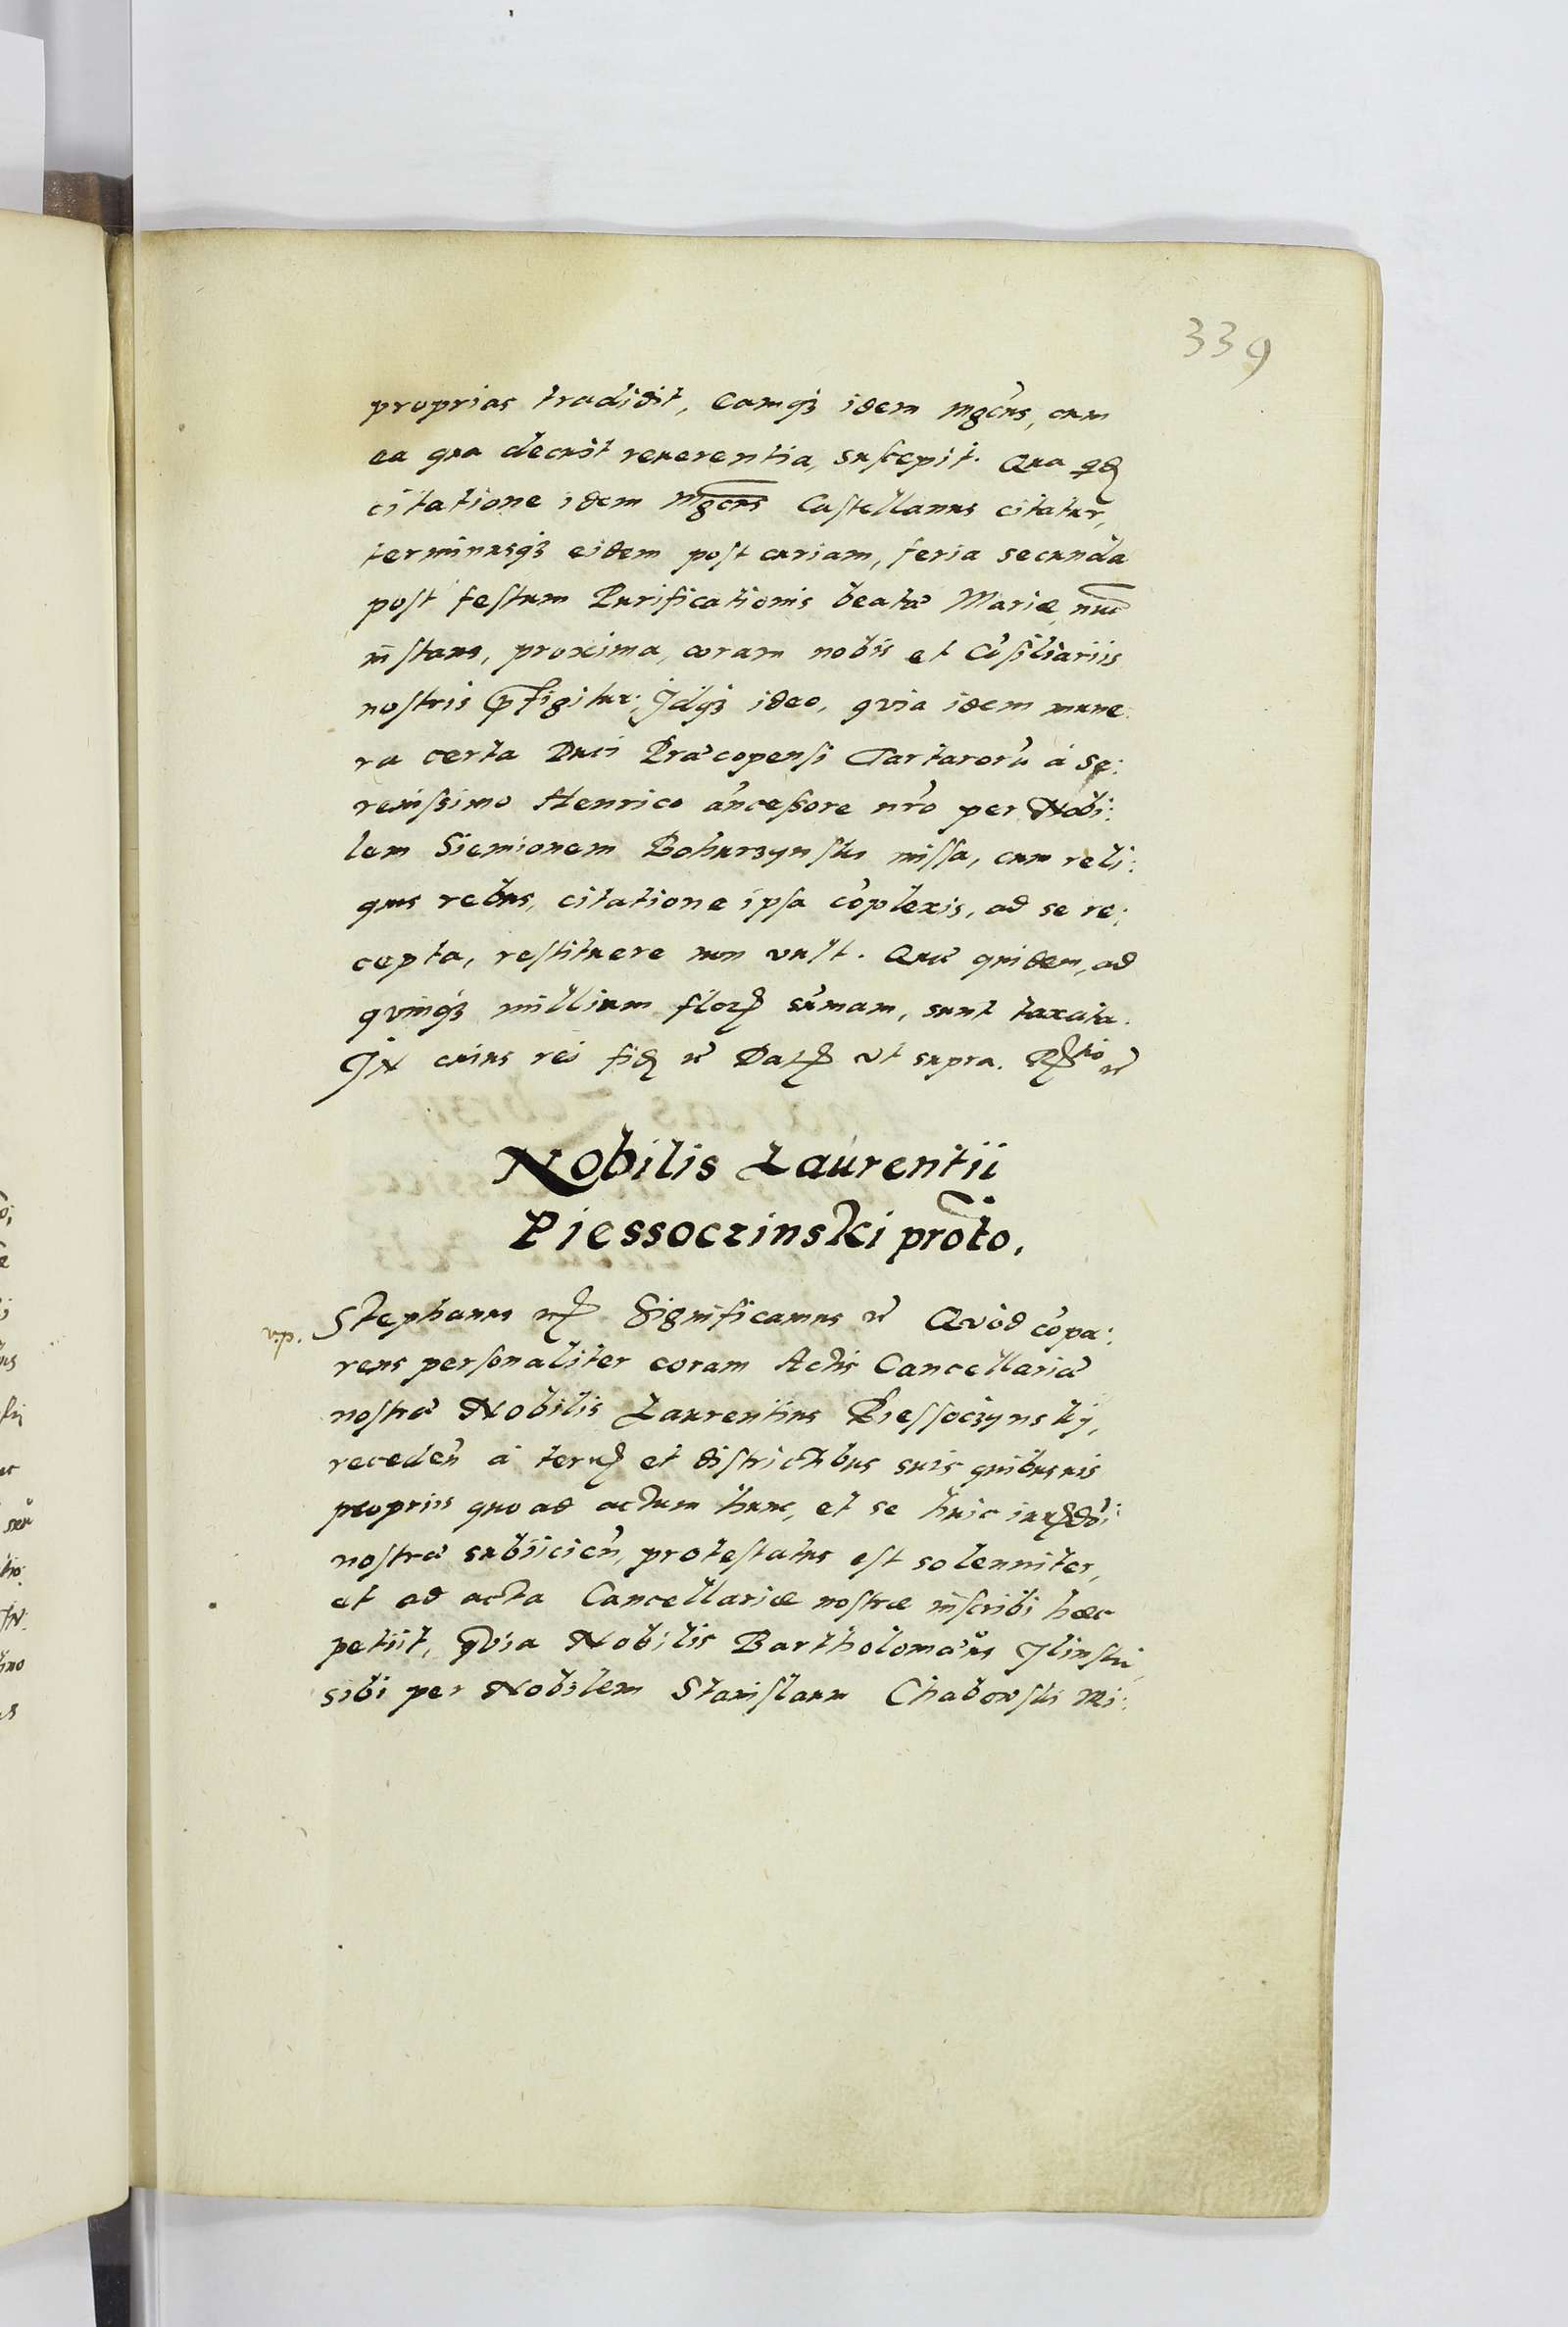 339
proprias tradidit, Eamqꝫ idem mgcus, cum
ea qua decuit reuerentia, suscepit. Qua qd
citatione idem mgcus Castellanus citatur,
terminusqꝫ eidem post curiam, feria secunda
post festum Purificationis beatæ Mariæ, nūc
īnstans, proxima, coram nobis et Cōsiliariis
nostris p̄figitur. Idqꝫ ideo, quia idem mune:
ra certa Duci Præcopensi Tartarorū à Se:
renissimo Henrico ancessore nro per Nobi:
lem Siemionem Bohurzynski missa, cum reli:
quis rebus, citatione ipsa cōplexis, ad se re:
cepta, restituere non vult. Quæ quidem, ad
quinqꝫ millium flor sūmam, sunt taxata.
IN cuius rei fid etc Dat vt supra. Rtio etc
Nobilis Laurentii
Piessoczinski proto.
v.p. Stephanus etc Significamus etc Quòd cōpa:
rens personaliter coram Actis Cancellariæ
nostræ Nobilis Laurentius Piessoczynskÿ,
receden̄ à terris et districtibus suis quibusuis
propriis quo ad actum hunc, et se huic iurdōi
nostræ subiicien̄, protestatus est solenniter,
et ad acta Cancellariæ nostræ īnscribi hæc
petiit, quia Nobilis Bartholomæus Ilinski,
sibi per Nobilem Stanislaum Chabowski Mi: